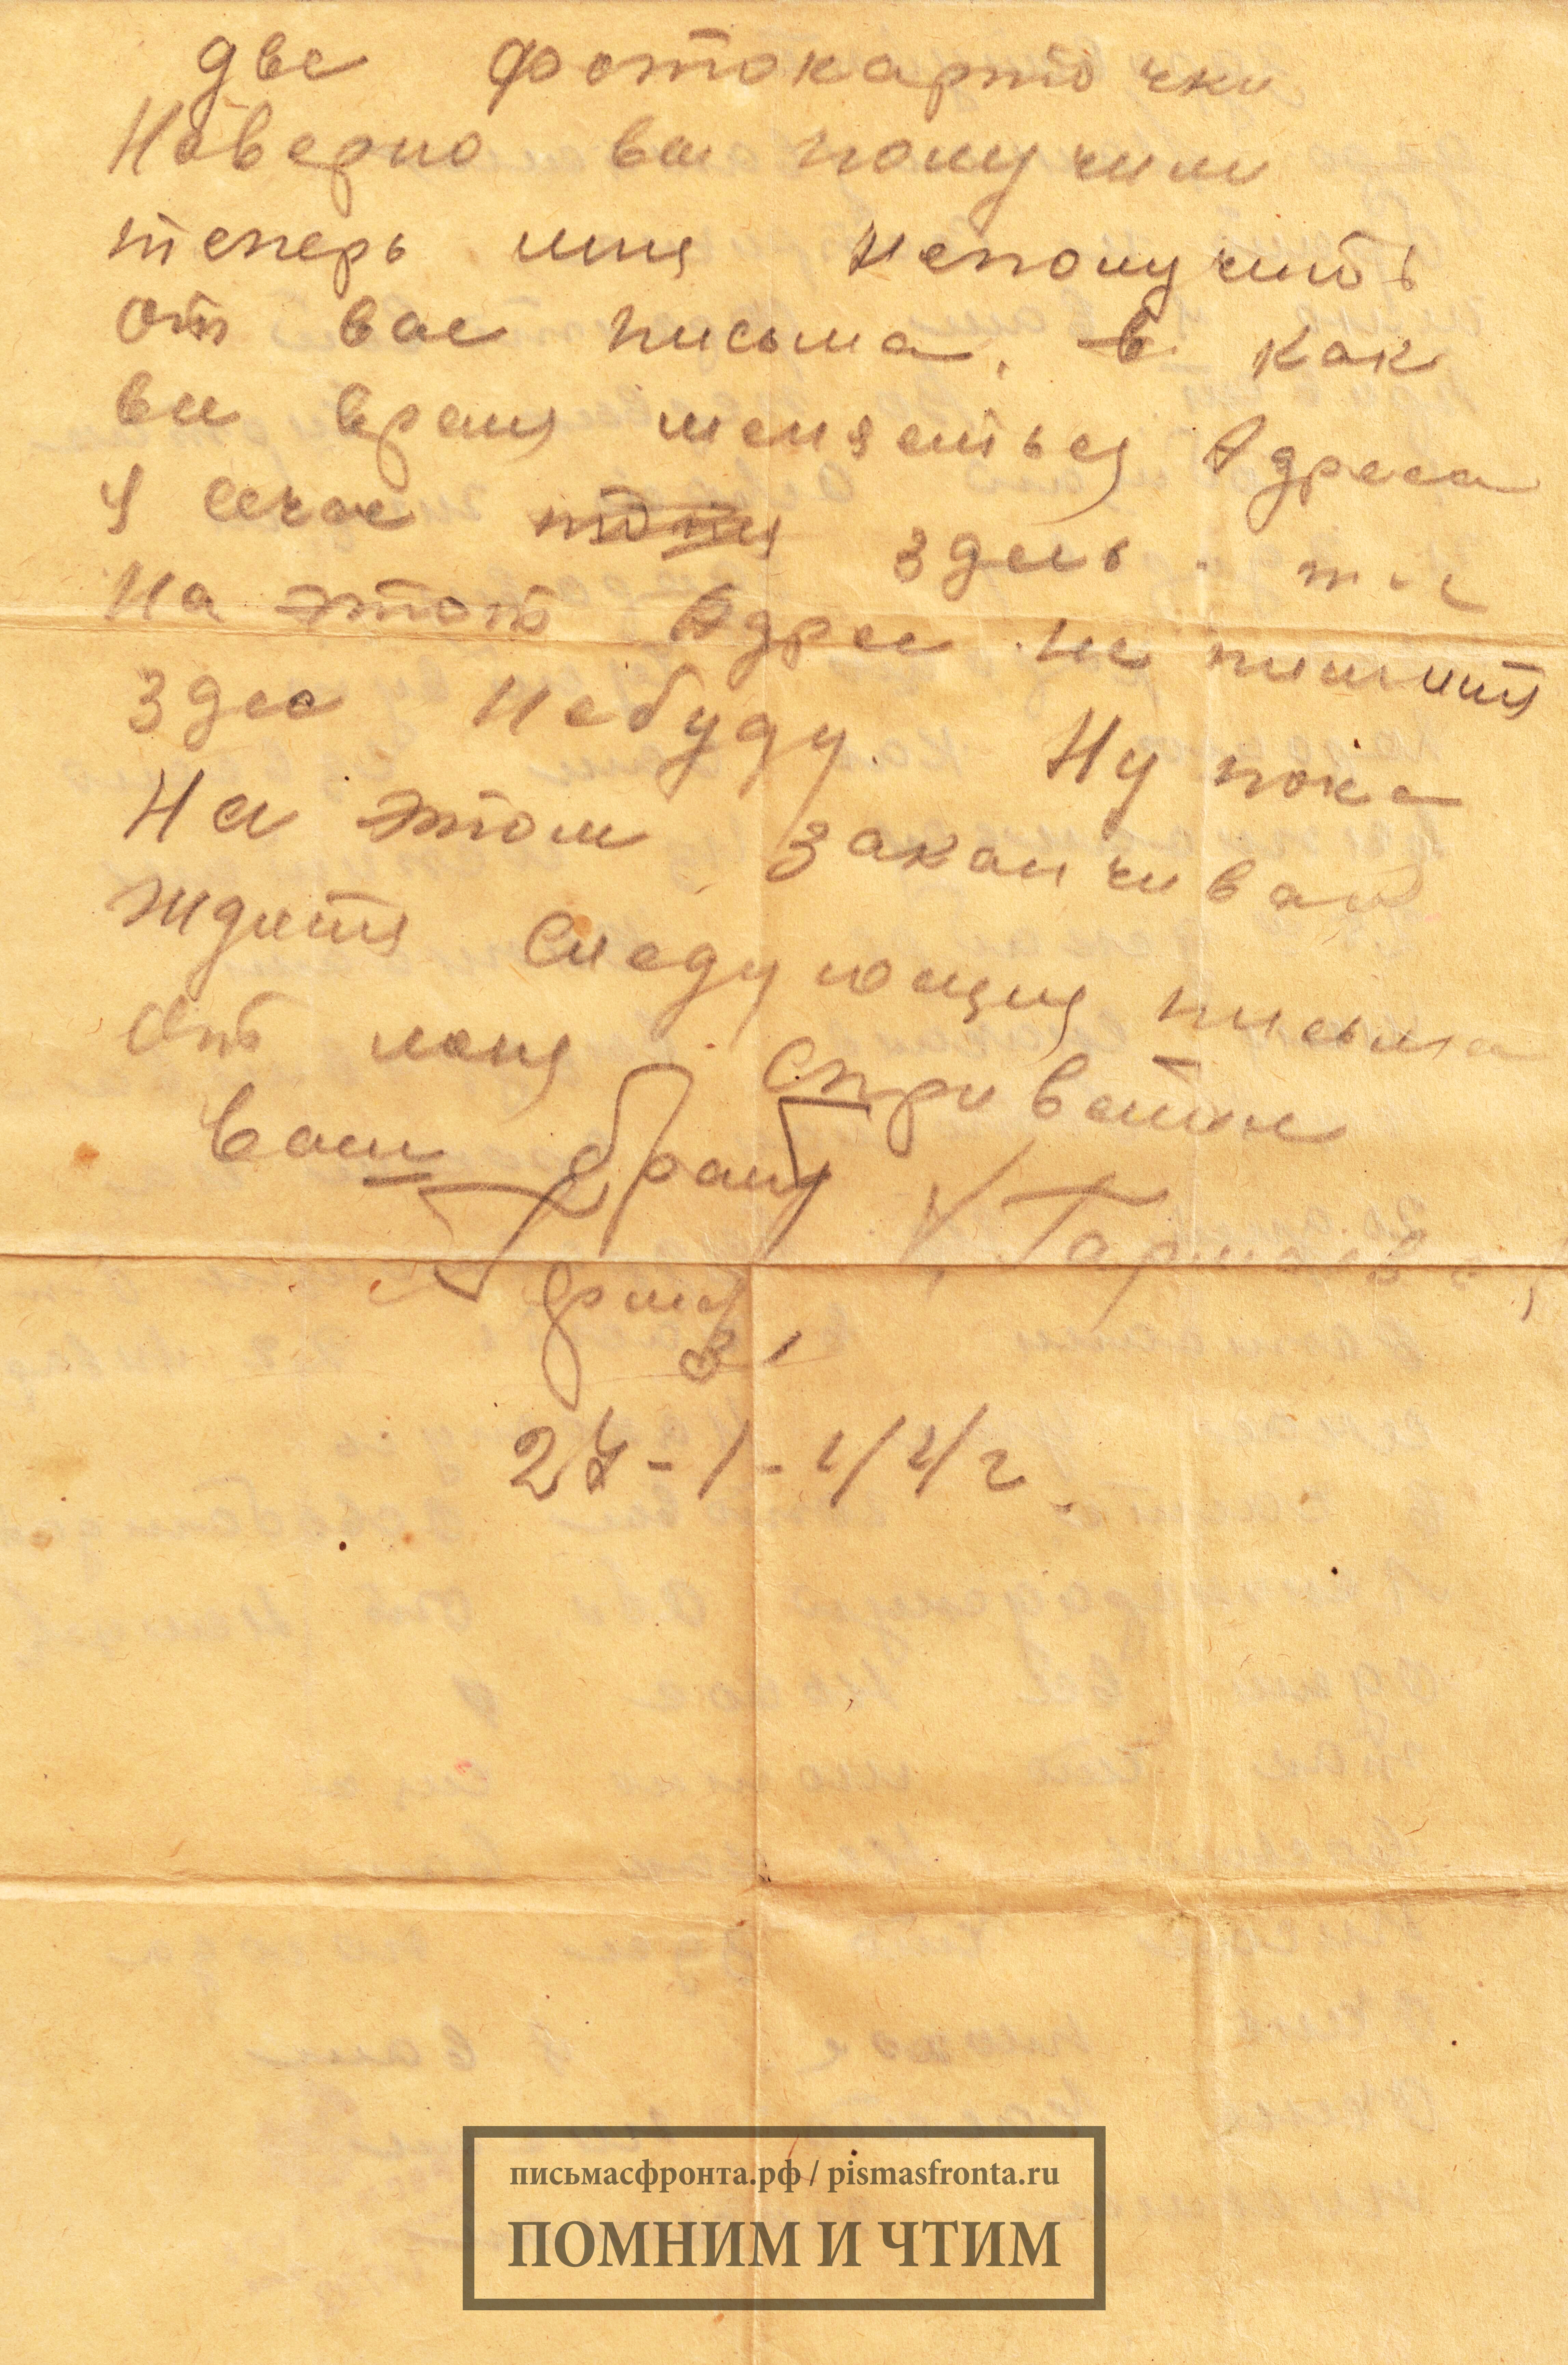 две фотокарточки
Наверно вы получили
теперь мня неполучить
от вас письма, как
все время меняеться Адреса
Я сечас здесь.
На этот Адрес не пишитя
здес небуду. Ну пока
На этом заканчиваю
Ждитя следующия письма
От меня сприветом
Ваш брат
27-1-44г.
письмасфронта.рф / pismasfronta.ru
ПОМНИМ И ЧТИМ